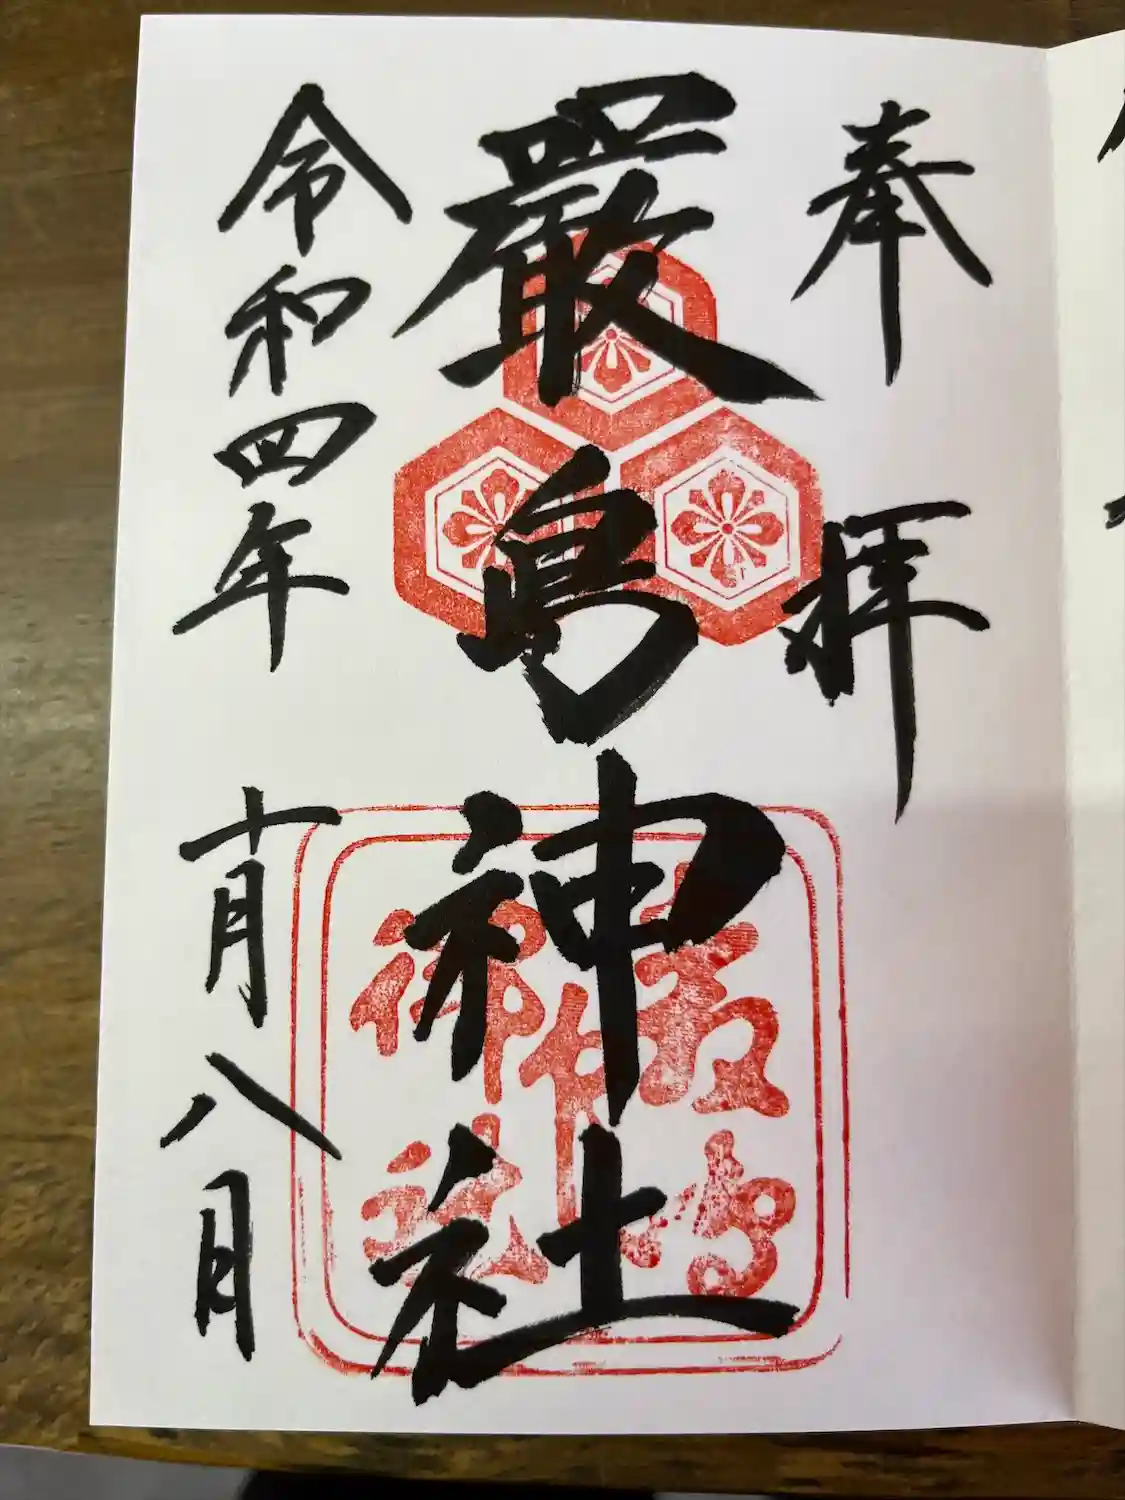 奉拝
厳島神社
令和四年十月八日